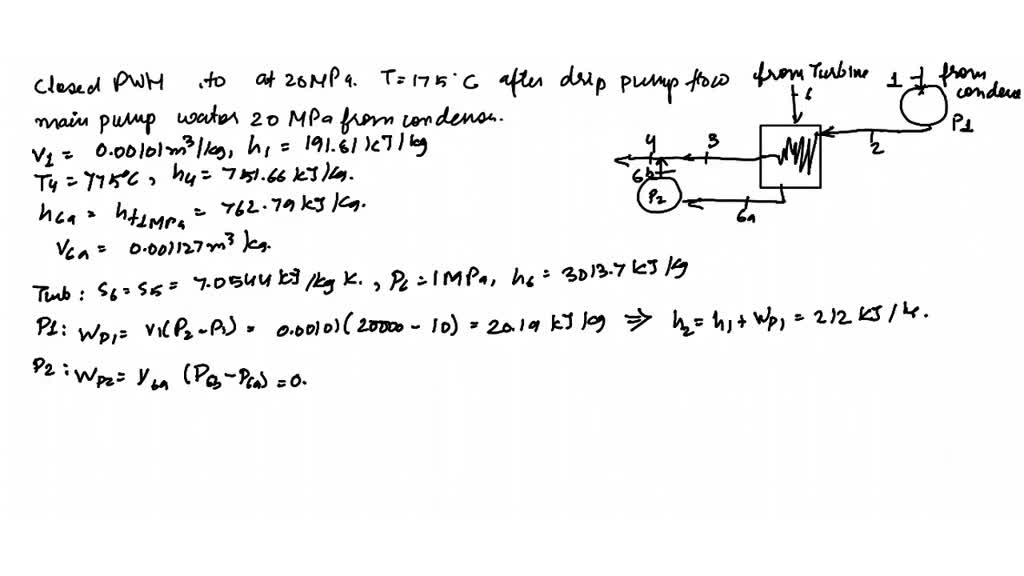 Closed PWH .to at 20MPa. T=175°C after drip pump flow
main pump water 20 MPa from condenson.
V1 = 0.00101m³/kg, h1 = 191.81 kJ/kg
T4 = 175°C, h4 = 751.66 kJ/kg.
h6a = hf1MPa = 762.79 kJ/kg.
V6a = 0.001127m³/kg.
Turb: S6 = S5 = 7.0544 kJ/kg K., P6 = 1MPa, h6 = 3013.7 kJ/kg
P1: WP1 = V1(P2-P1) = 0.00101(20000-10) = 20.19 kJ/kg ⇒ h2 = h1 + WP1 = 212 kJ/
P2: WP2 = V6a (P6b-P6a) = 0.
from Turbine
6
1
from
condense
P1
2
3
4
6b
P2
6a